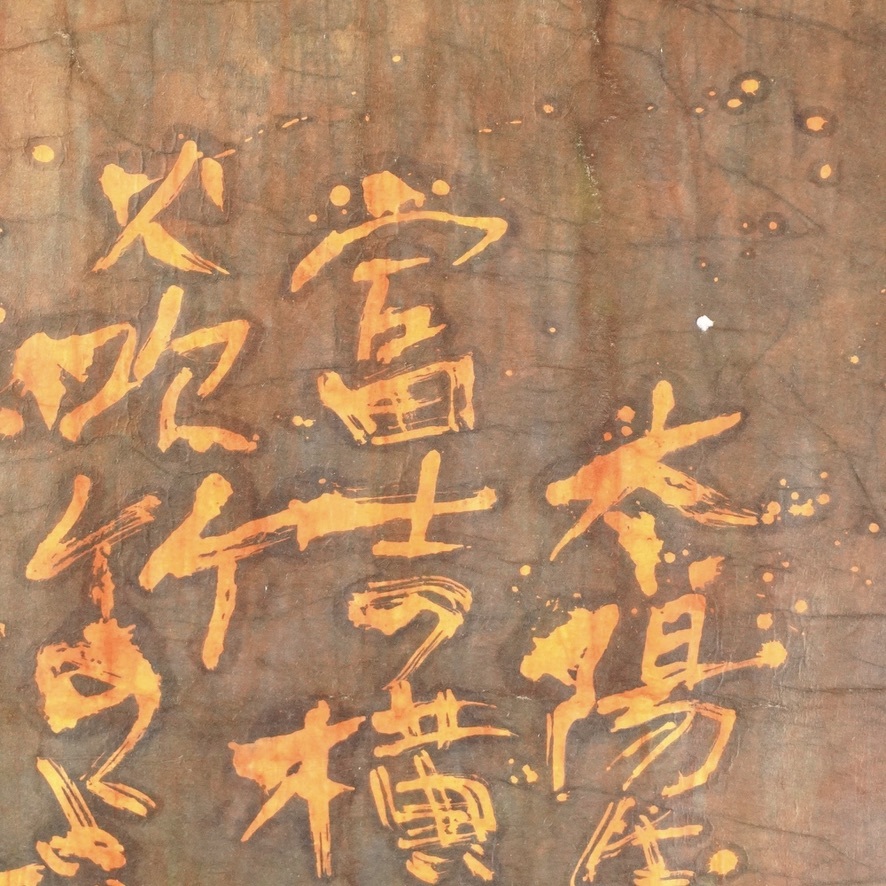 太陽
富士の横
火吹竹のく